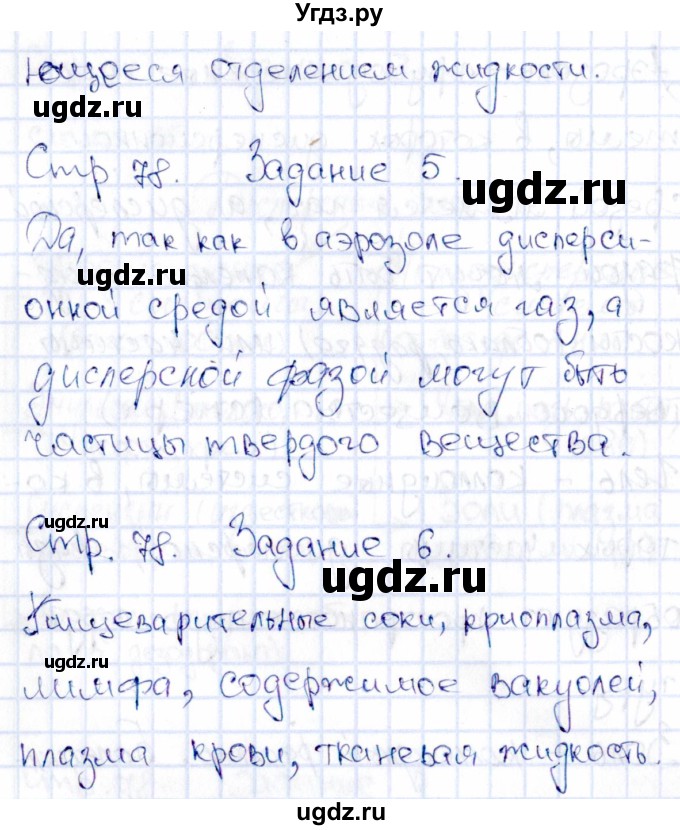 Угдз.ру
ющееся отделением жидкости.
ugdz.ru
Стр 78. Задание 5.
ugdz.ru
Да, так как в аэрозоле дисперси-
ugdz.ru
онной средой является газ, а
дисперсной фазой могут быть
частицы твердого вещества.
ugdz.ru
Стр. 78. Задание 6.
ugdz.ru
Пищеварительные соки, криоплазма,
ugdz.ru
лимфа, содержимое вакуолей,
плазма крови, тканевая жидкость.
ugdz.ru